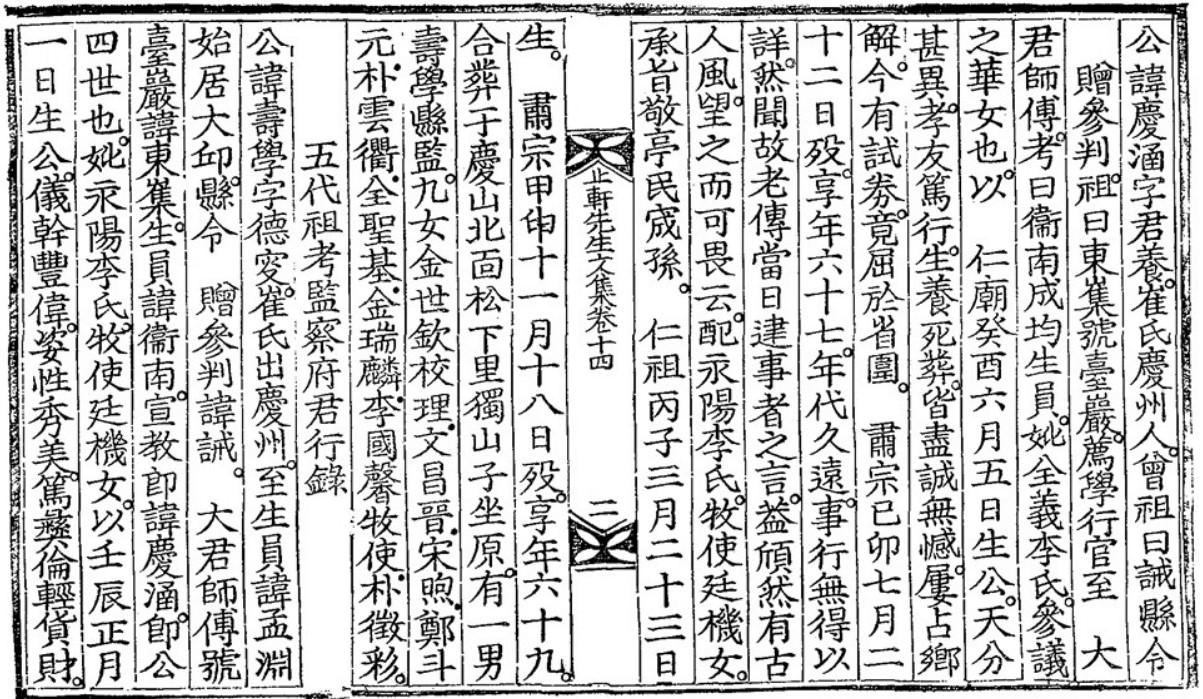 公諱慶涵字君養。崔氏慶州人。曾祖曰誡縣令
贈參判。祖曰東㠍號臺巖。薦學行官至　大
君師傅。考曰衞南成均生員。妣全義李氏。參議
之華女也。以　仁廟癸酉六月五日生公。天分
甚異。孝友篤行。生養死葬。皆盡誠無憾。屢占鄉
解。今有試券。竟屈於省圍。　肅宗己卯七月二
十二日歿。享年六十七。年代久遠。事行無得以
詳。然聞故老傳當日逮事者之言。蓋頎然有古
人風。望之而可畏云。配永陽李氏。牧使廷機女。
承旨敬亭民宬孫。　仁祖丙子三月二十三日
止軒先生文集卷十四　二
生。　肅宗甲申十一月十八日歿。享年六十九。
合葬于慶山北面松下里獨山子坐原。有一男
壽學縣監。九女金世欽校理．文昌晉．宋煦．鄭斗
元．朴雲衢．全聖基．金瑞麟．李國馨牧使．朴徵彩。
五代祖考監察府君行錄
公諱壽學字德叜。崔氏出慶州。至生員諱孟淵
始居大邱。縣令　贈參判諱誡。　大君師傅號
臺巖諱東㠍。生員諱衞南。宣教郎諱慶涵。卽公
四世也。妣永陽李氏。牧使廷機女。以壬辰正月
一日生公。儀幹豐偉。姿性秀美。篤彝倫輕貨財。